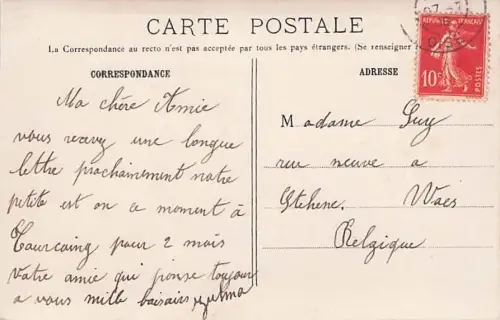 CARTE POSTALE
La Correspondance au recto n'est pas acceptée par tous les pays étrangers. (Se renseigner
CORRESPONDANCE
Ma chère Amie
vous recevez une longue
lettre prochainement notre
petite est en ce moment à
Tourcoing pour 2 mois
Votre amie qui pense toujour
a vous mille baisairs zulma
ADRESSE
RÉPUBLIQUE FRANÇAISE
10c
POSTES
OISE
Madame Guy
rue neuve a
Stekene. Waes
Belgique